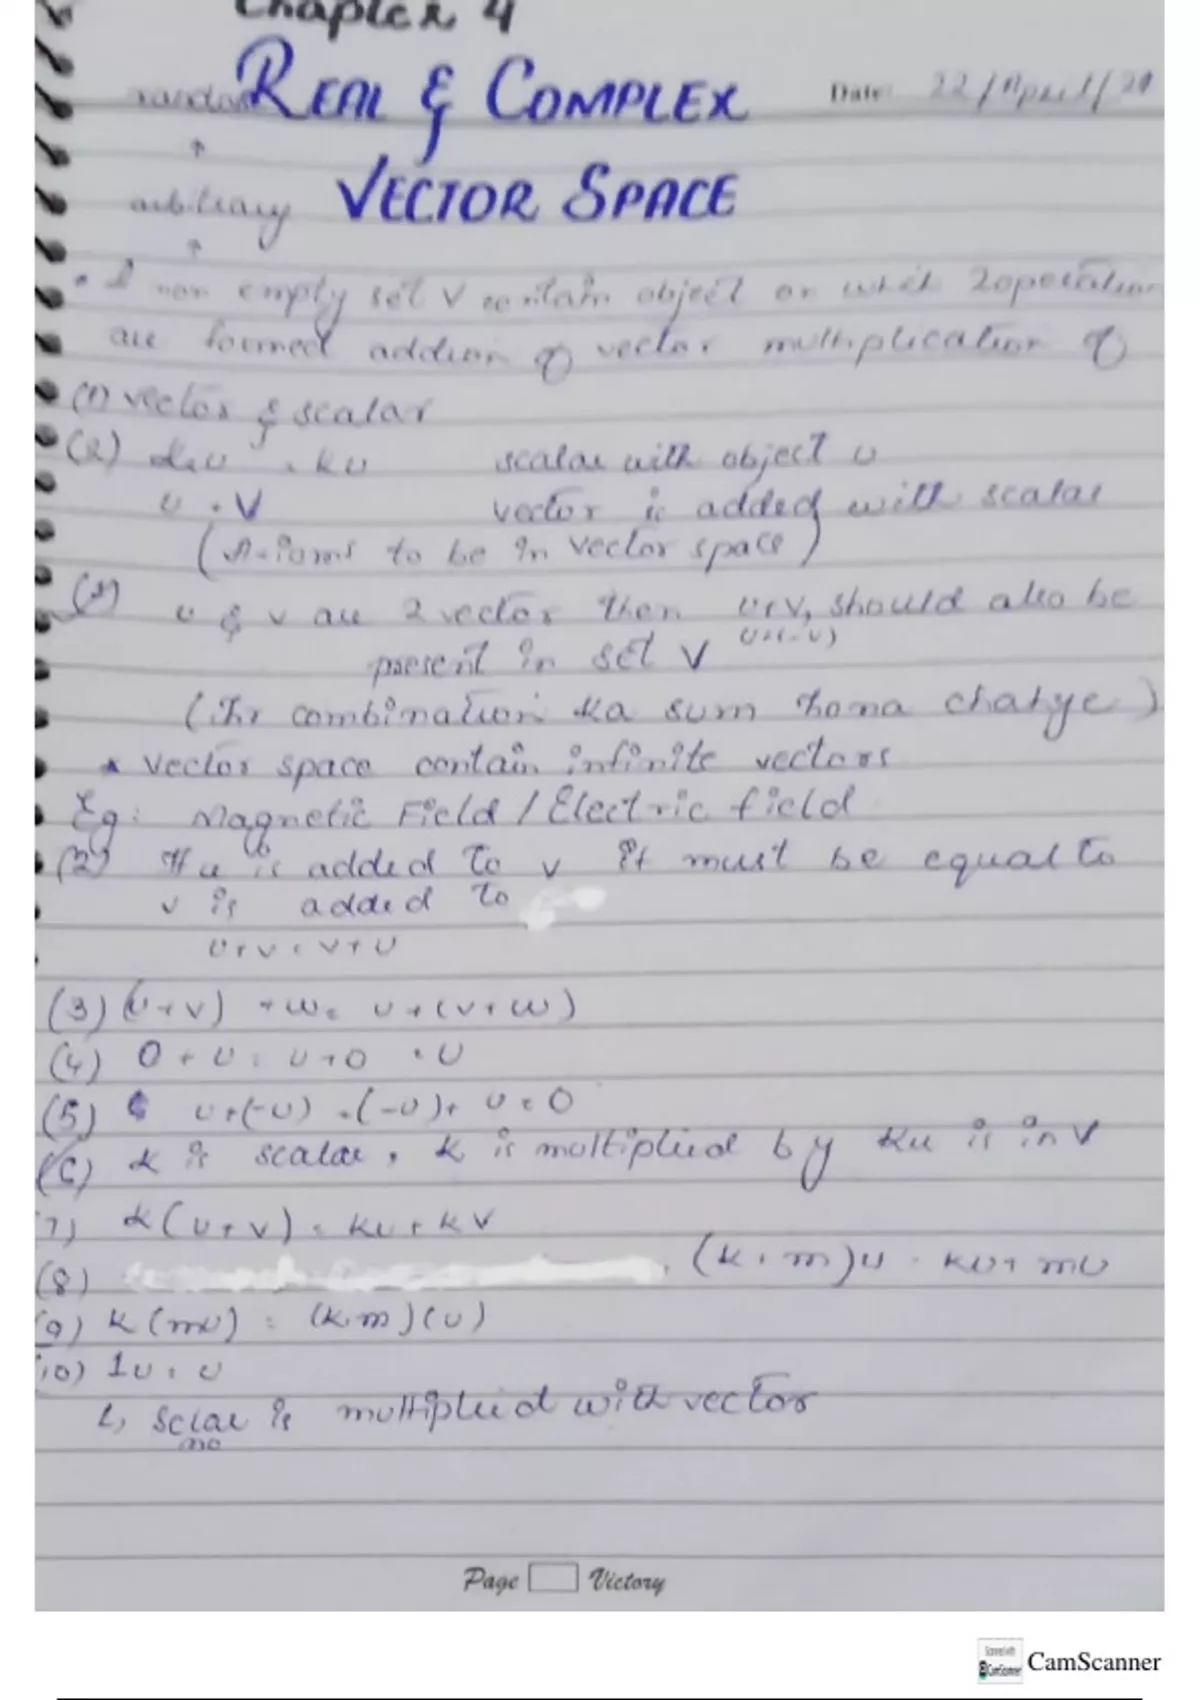 Chapter 4
REAL & COMPLEX
Date: 22/April/2
random
VECTOR SPACE
arbitrary
non empty set V contain object on which 2 operation
are formed addion of vector multiplication of
(1) vector & scalar
(2) k.u = ku scalar with object u
u + V vector is added with scalar
(Axioms to be in vector space)
u & v are 2 vector then u+v, should also be
u+(-v)
present in set V
(Thr combination ka sum hona chahye)
* vector space contain infinite vectors
Eg: Magnetic Field / Electric field
(2) If u is added to v it must be equal to
v is added to
u+v = v+u
(3) (u+v) + w = u+(v+w)
(4) 0 + u = u+0 = u
(5) u+(-u) = (-u)+ u = 0
(6) k is scalar, k is multiplied by ku is in V
7) k(u+v) = ku+kv
(8) (k+m)u = ku+mu
(9) k(mu) = (k.m)(u)
10) 1u = u
L, sclar is multiplied with vector
no
Page Victory
Scanned with
CamScanner
CamScanner